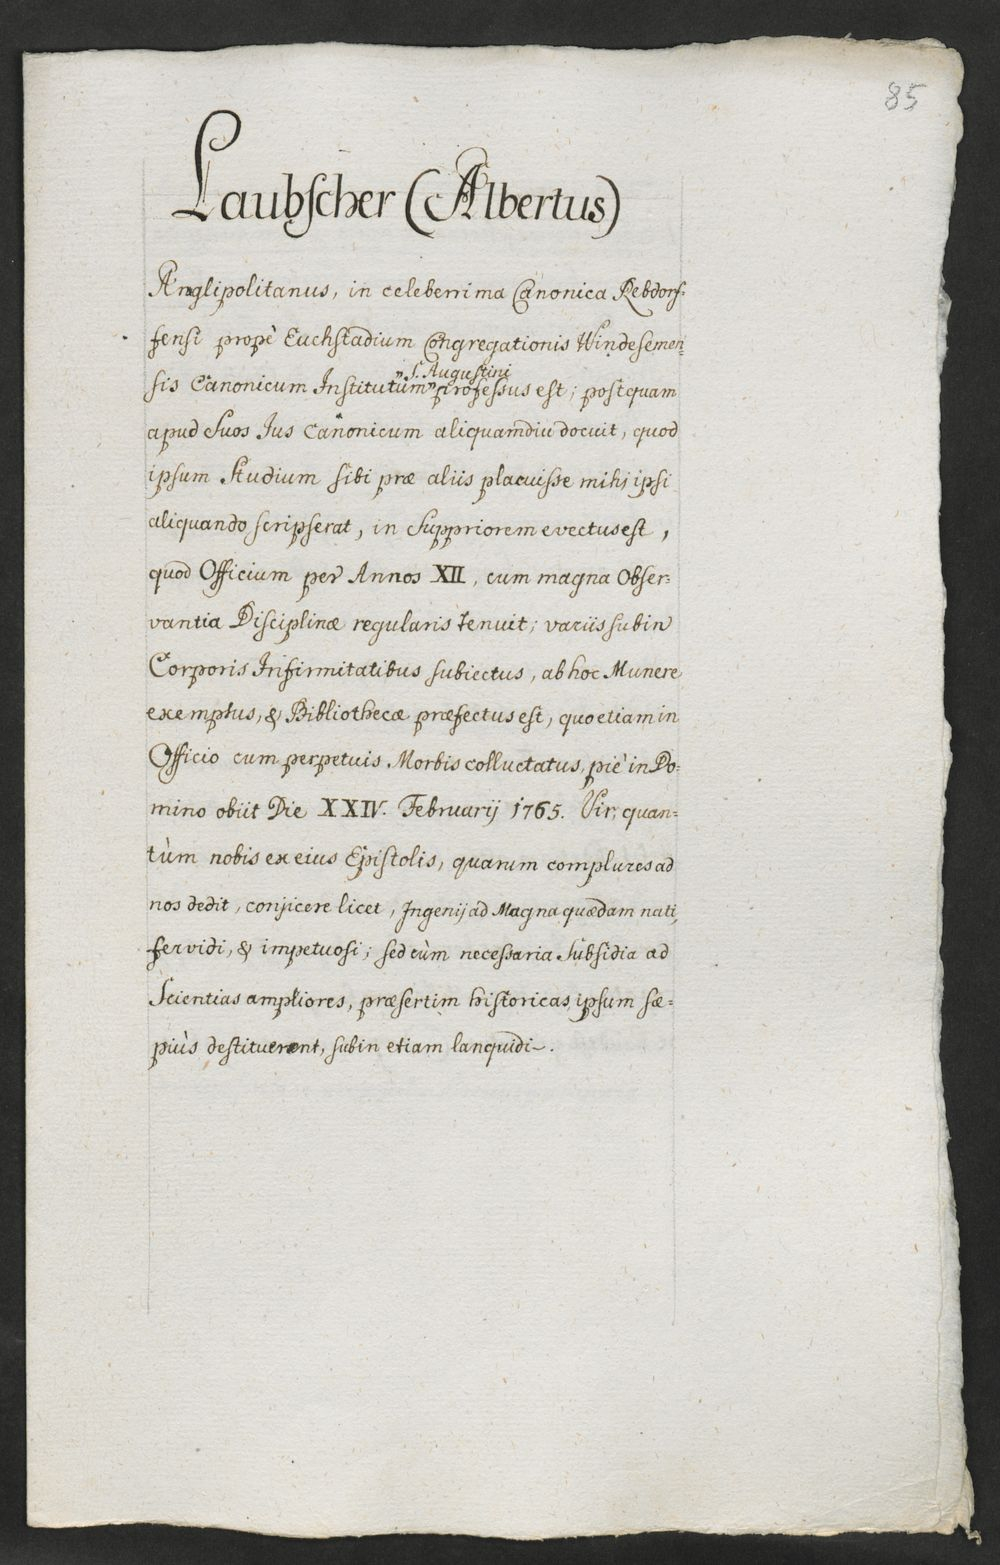 85
Laubscher (Albertus)
Anglipolitanus, in celeberrima Canonica Rebdorf=
fensi propè Euchstadium Congregationis Windesemen=
„S. Augustini
sis Canonicum Institutum„ professus est; postquam
apud Suos Jus Canonicum aliquamdiu docuit, quod
ipsum Studium sibi præ aliis placuisse mihi ipsi
aliquando scripserat, in Suppriorem evectus est,
quod Officium per Annos XII, cum magna Obser=
vantia Disciplinæ regularis tenuit; variis subin
Corporis Infirmitatibus subiectus, ab hoc Munere
exemptus, & Bibliothecæ præfectus est, quo etiam in
Officio cum perpetuis Morbis colluctatus, piè in Do=
mino obiit Die XXIV. Februarij 1765. Vir, quan=
tùm nobis ex eius Epistolis, quarum complures ad
nos dedit, conjicere licet, Jngenij ad Magna quædam nati,
fervidi, & impetuosi; sed cùm necessaria Subsidia ad
Scientias ampliores, præsertim historicas, ipsum sæ=
piùs destituerent, subin etiam lanquidi.